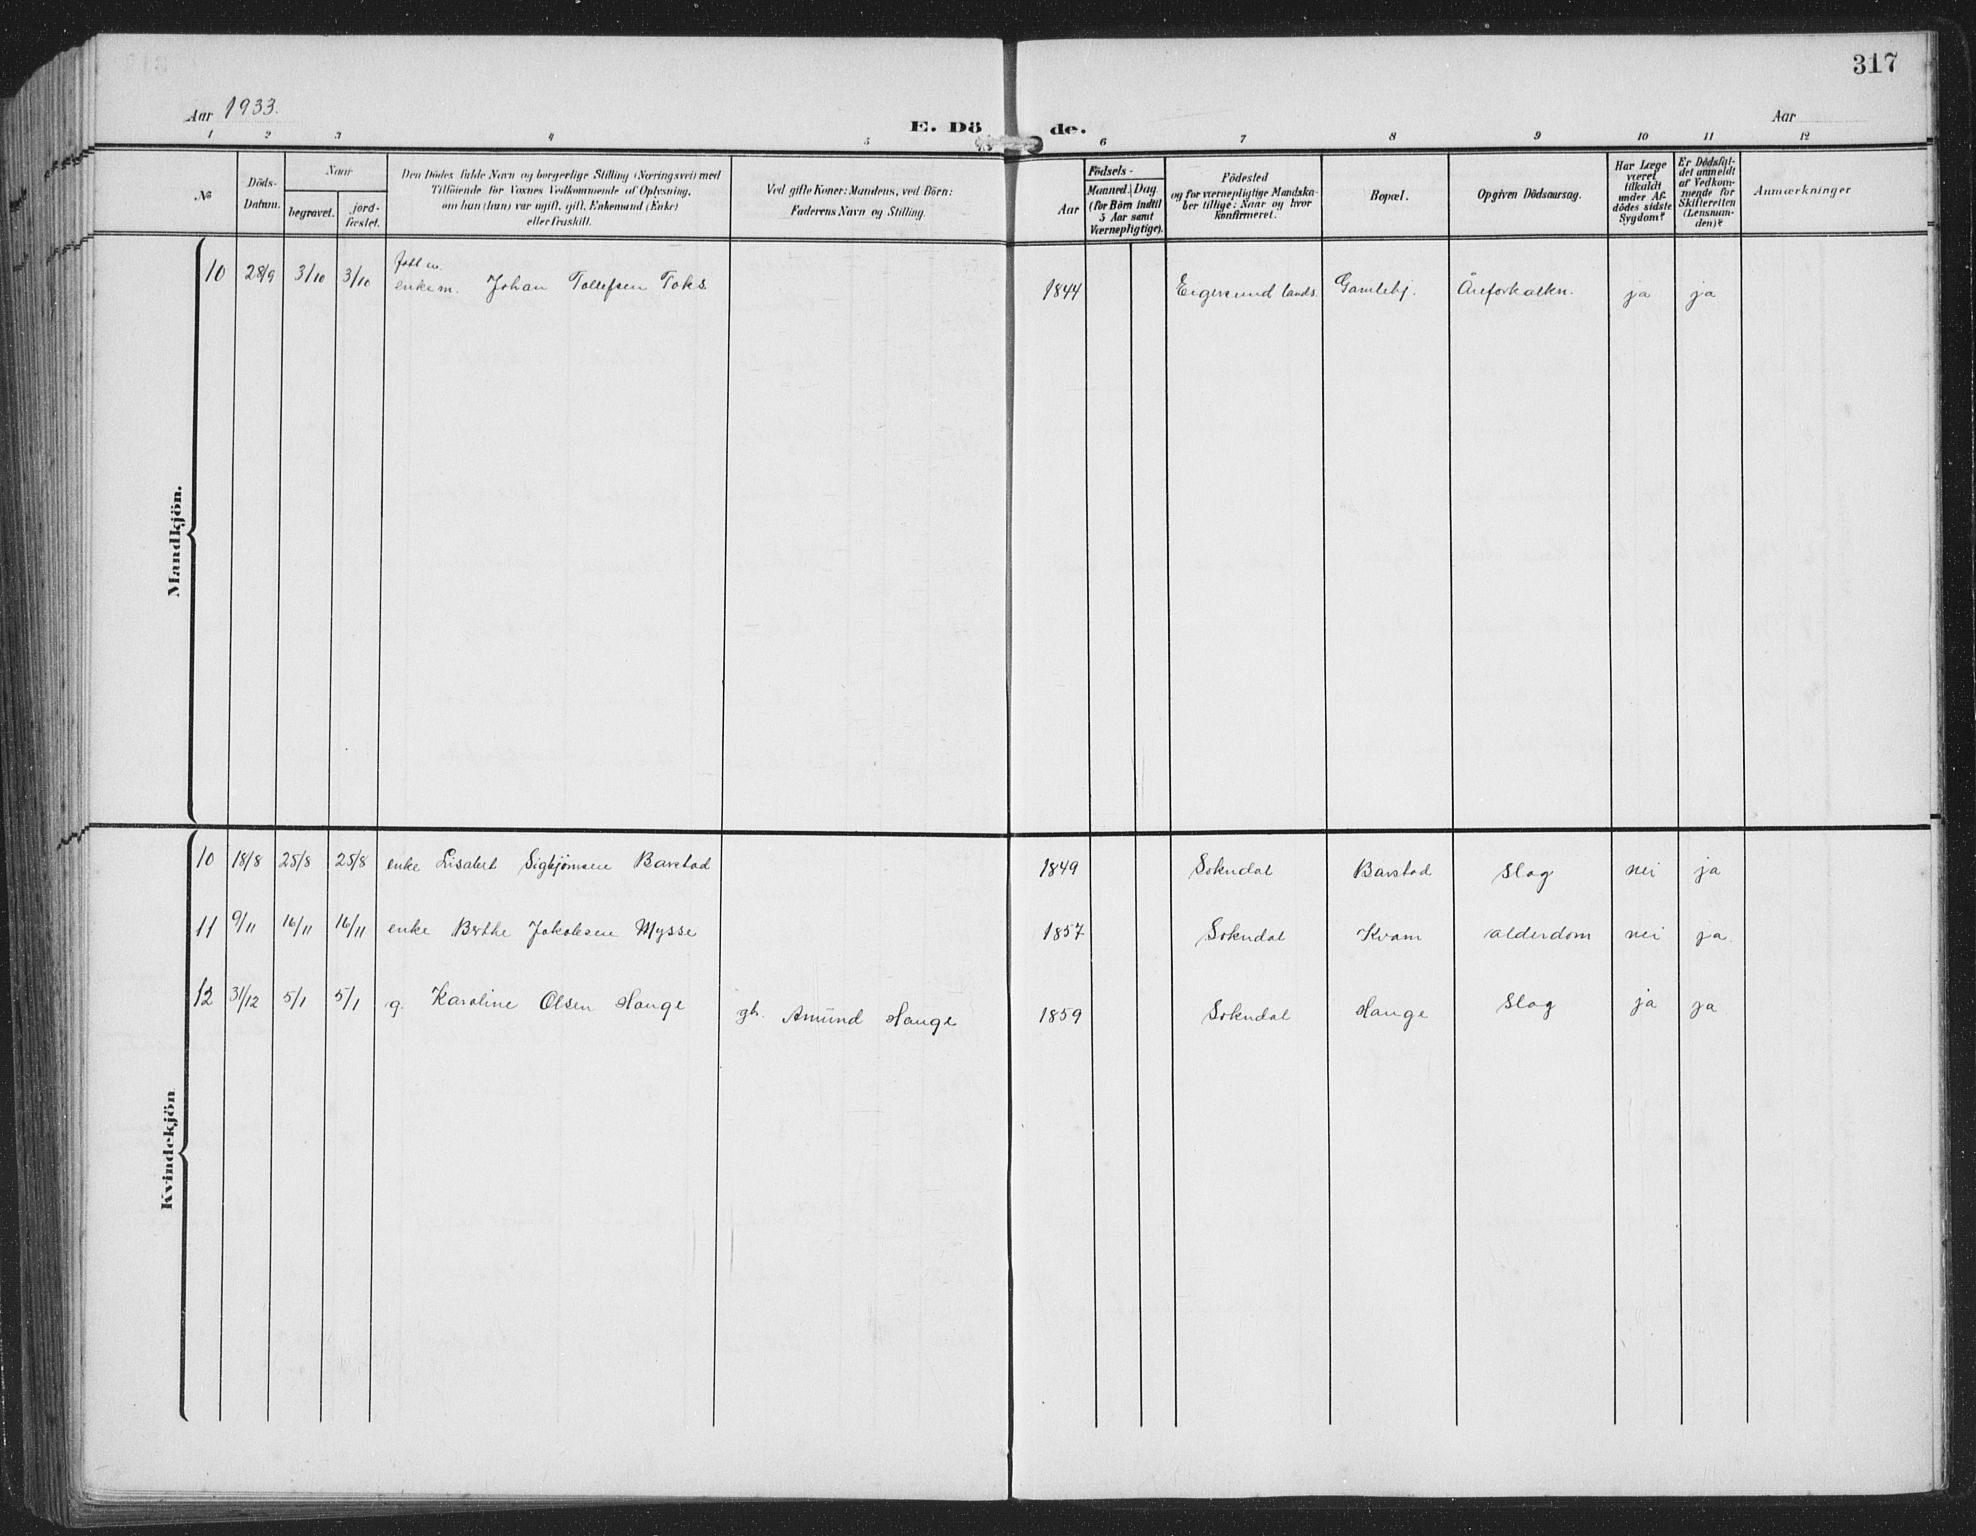 317
Aar 1933.
Aar
E. Dö de.
1 2 3 4 5 6 7 8 9 10 11 12
No
Döds-
Datum.
Naar
begravet.
jord-
fæstet.
Den Dödes fulde Navn og borgerlige Stilling (Næringsvei) med
Tilföiende for Voxnes Vedkommende af Oplysning,
om han (hun) var ugift, gift, Enkemand (Enke)
eller fraskilt.
Ved gifte Koner: Mandens, ved Börn:
Faderens Navn og Stilling.
Födsels-
Aar
Maaned. Dag
(for Börn indtil
5 Aar samt
Værnepligtige).
Födested
og for værnepligtige Mandska-
ber tillige: Naar og hvor
konfirmeret.
Bopæl.
Opgiven Dödsaarsag.
Har Læge
været
tilkaldt
under Af-
dödes sidste
Sygdom?
Er Dödsfal-
det anmeldt
af Vedkom-
mende for
Skifteretten
(Lensman-
den)?
Anmærkninger
Mandkjön.
10 28/9 3/10 3/10 enkem. Johan Tollefsen Toks. 1844 Eigersund lands. Gamleby. Åreforkalkn. ja ja
Kvindekjön
10 18/8 25/8 25/8 enke Lisabet Sigbjørnsen Barstad 1849 Sokndal Barstad Slag nei ja
11 9/11 16/11 16/11 enke Berthe Jakobsen Mysse 1857 Sokndal Kvam alderdom nei ja.
12 31/12 5/1 5/1 g. Karoline Olsen Hauge gb. Amund Hauge 1859 Sokndal Hauge Slag ja ja